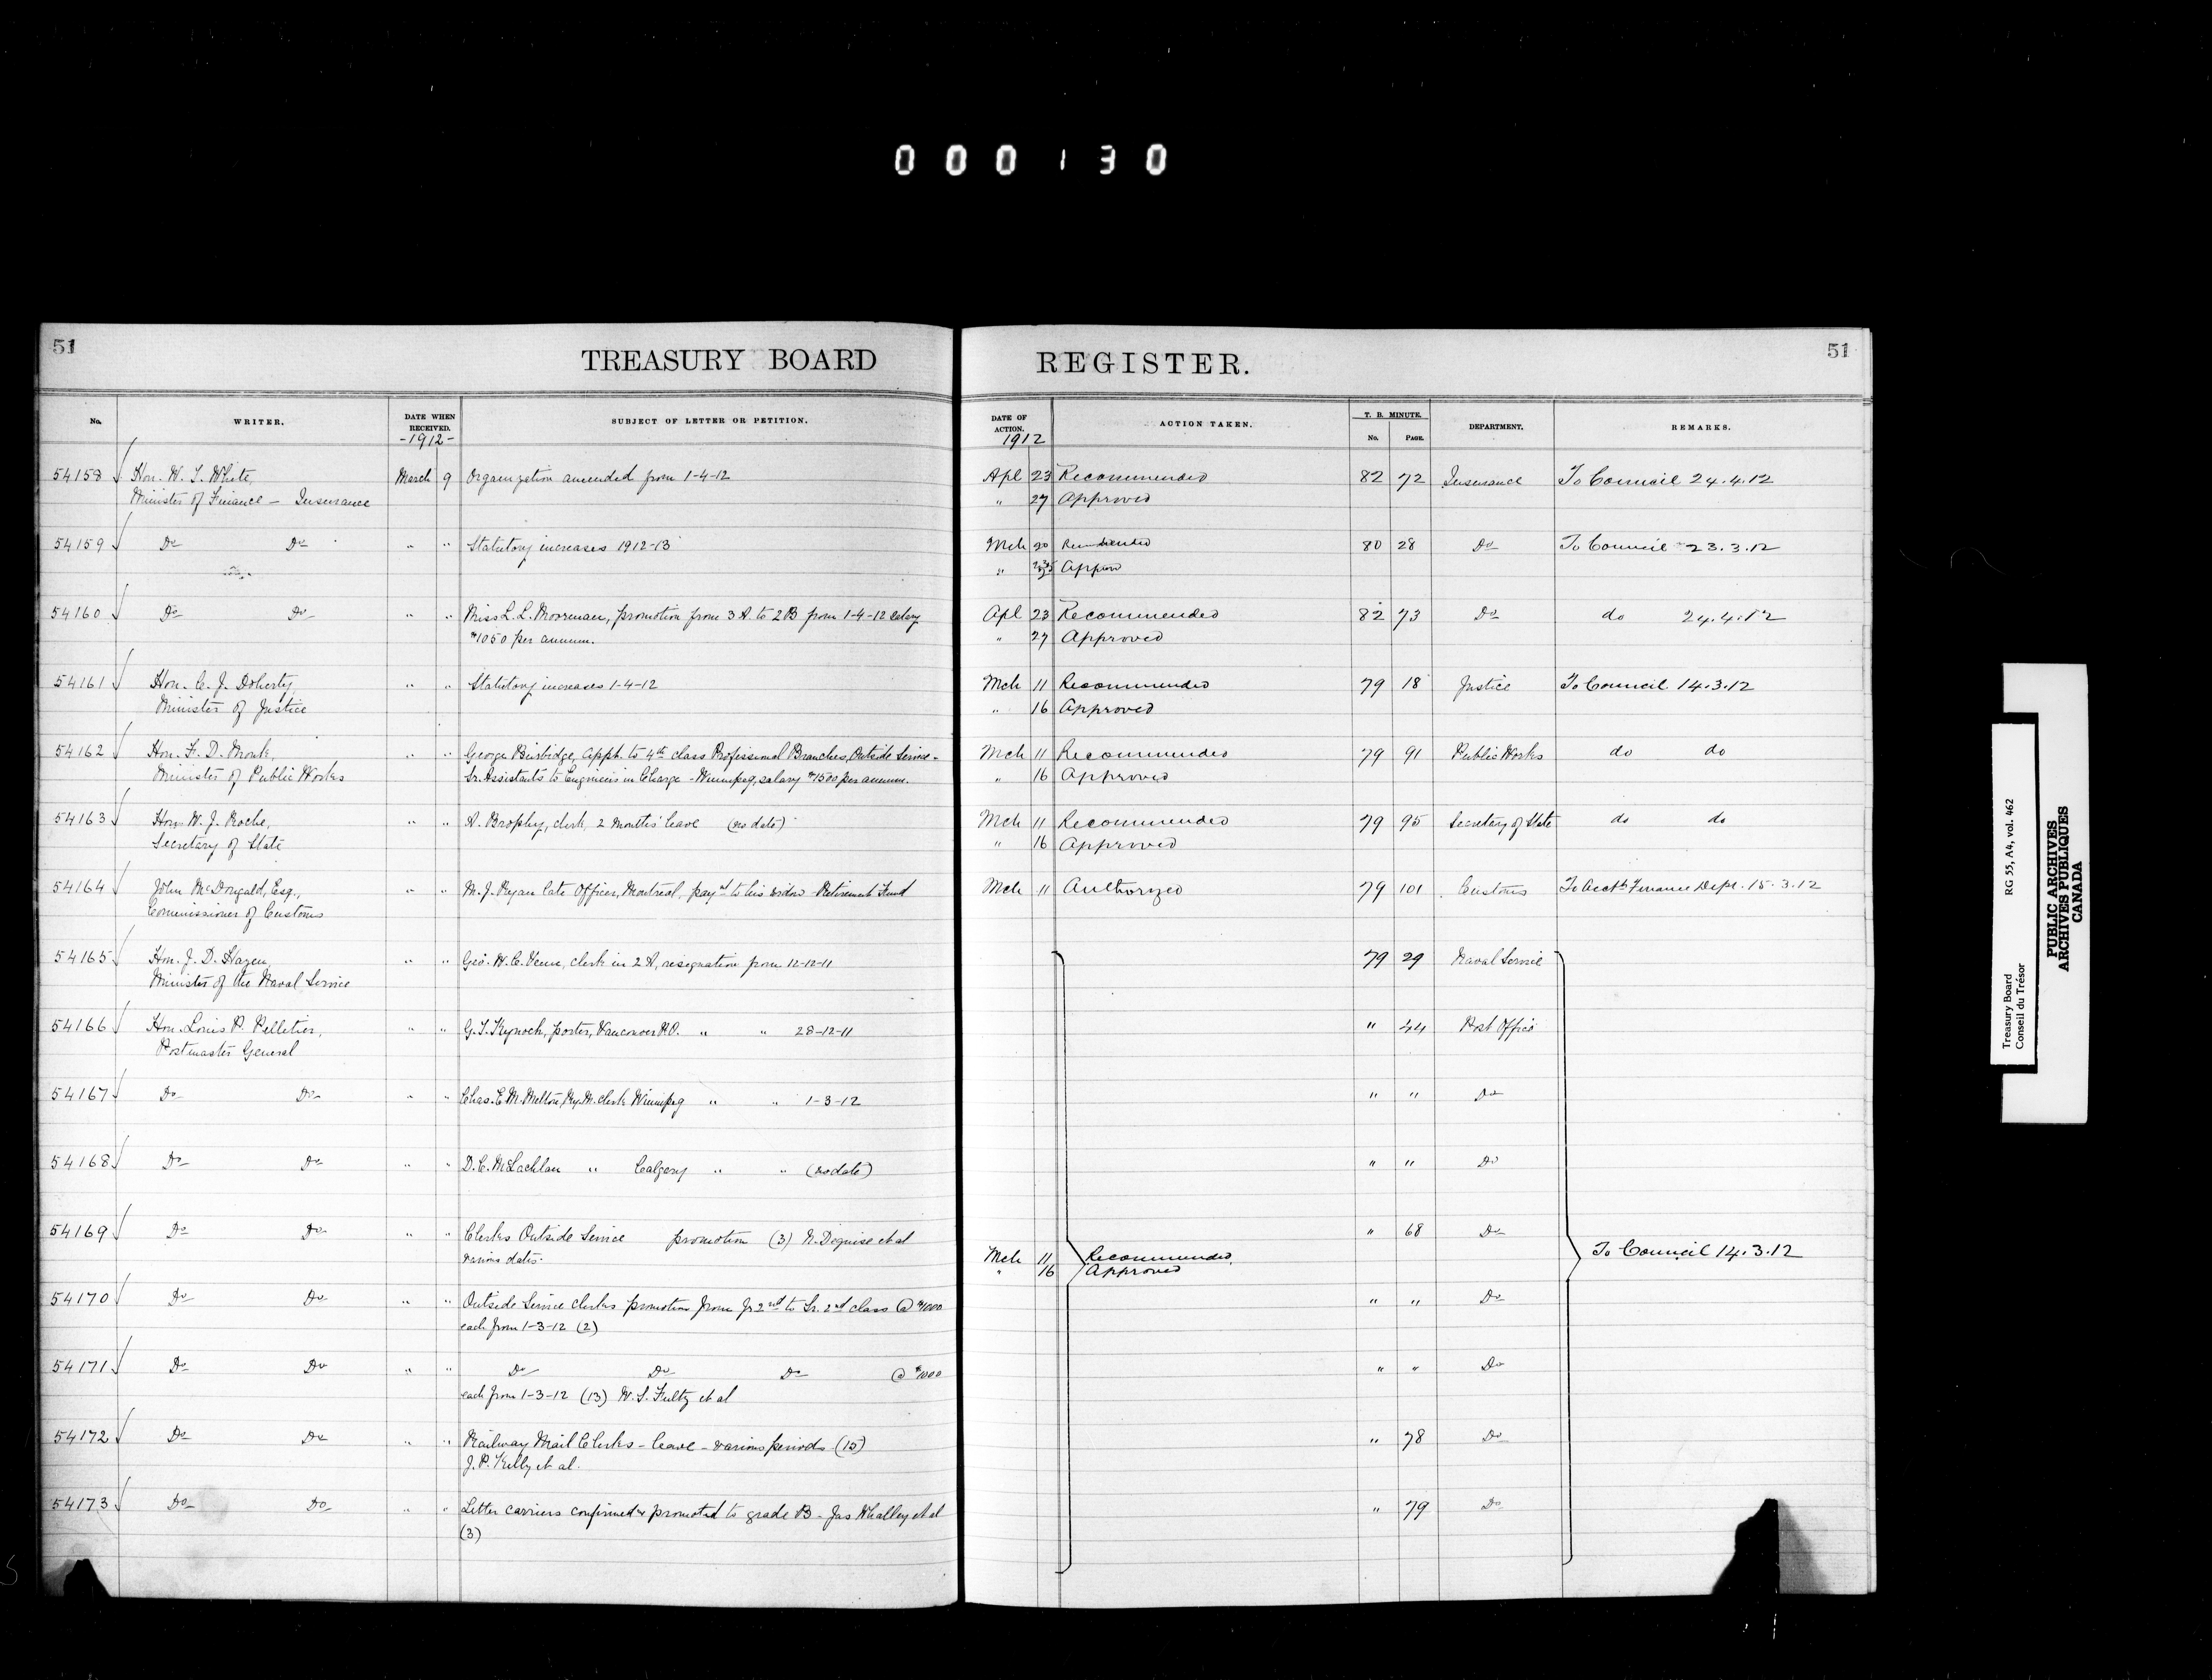 000130
51 TREASURY BOARD REGISTER. 51
No. WRITER. DATE WHEN RECEIVED. SUBJECT OF LETTER OR PETITION. DATE OF ACTION. ACTION TAKEN. T. B. MINUTE. DEPARTMENT. REMARKS.
-1912- 1912 No. PAGE.
54158 Hon. W. T. White, March 9 Organization amended from 1-4-12 Apl 23 Recommended 82 72 Insurance To Council 24.4.12
Minister of Finance - Insurance " 27 Approved
54159 Do Do " " Statutory increases 1912-13 Mch 20 80 28 Do To Council 23.3.12
"
54160 Do Do " " Miss L. L. Moorman, promotion from 3 A. to 2 B from 1-4-12 salary Apl 23 Recommended 82 73 Do do 24.4.12
$1050 per annum. " 27 Approved
54161 Hon. C. J. Doherty, " " Statutory increases 1-4-12 Mch 11 Recommended 79 18 Justice To Council 14.3.12
Minister of Justice " 16 Approved
54162 Hon. F. D. Monk, " " George Burbidge, appt. to 4th class Professional Branches, Outside Service - Mch 11 Recommended 79 91 Public Works do do
Minister of Public Works Sr. Assistants to Engineers in Charge - Winnipeg, salary $1500 per annum. " 16 Approved
54163 Hon. W. J. Roche, " " A. Brophy, clerk, 2 months' leave (no date) Mch 11 Recommended 79 95 Secretary of State do do
Secretary of State " 16 Approved
54164 John McDougald, Esq., " " M. J. Ryan late Officer, Montreal, payt to his widow - Retirement Fund Mch 11 Authorized 79 101 Customs To Acct Finance Dept. 15.3.12
Commissioner of Customs
54165 Hon. J. D. Hazen, " " Geo. W. C. Venn, clerk in 2 A, resignation from 12-12-11 79 29 Naval Service
Minister of the Naval Service
54166 Hon. Louis P. Pelletier, " " G. T. Kynoch, porter, Vancouver P.O. " " 28-12-11 " 44 Post Office
Postmaster General
54167 Do Do " " Chas. E. M. Melton, Ry. M. clerk Winnipeg " " 1-3-12 " " Do
54168 Do Do " " D. C. McLachlan " Calgary " " (no date) " " Do
54169 Do Do " " Clerks Outside Service promotion (3) N. Deguise et al " 68 Do
various dates. Mch 11 Recommended, To Council 14.3.12
" 16 Approved
54170 Do Do " " Outside Service clerks promotion from Jr 2nd to Sr. 2nd class @ $1000 " " Do
each from 1-3-12 (2)
54171 Do Do " " Do Do Do @ $1000 " " Do
each from 1-3-12 (13) W. S. Fultz et al
54172 Do Do " " Railway Mail Clerks - leave - various periods (15) " 78 Do
J. P. Kelly et al.
54173 Do Do " " Letter carriers confirmed & promoted to grade B - Jas Whalley et al " 79 Do
(3)
Treasury Board RG 55, A4, vol. 462
Conseil du Trésor
PUBLIC ARCHIVES
ARCHIVES PUBLIQUES
CANADA